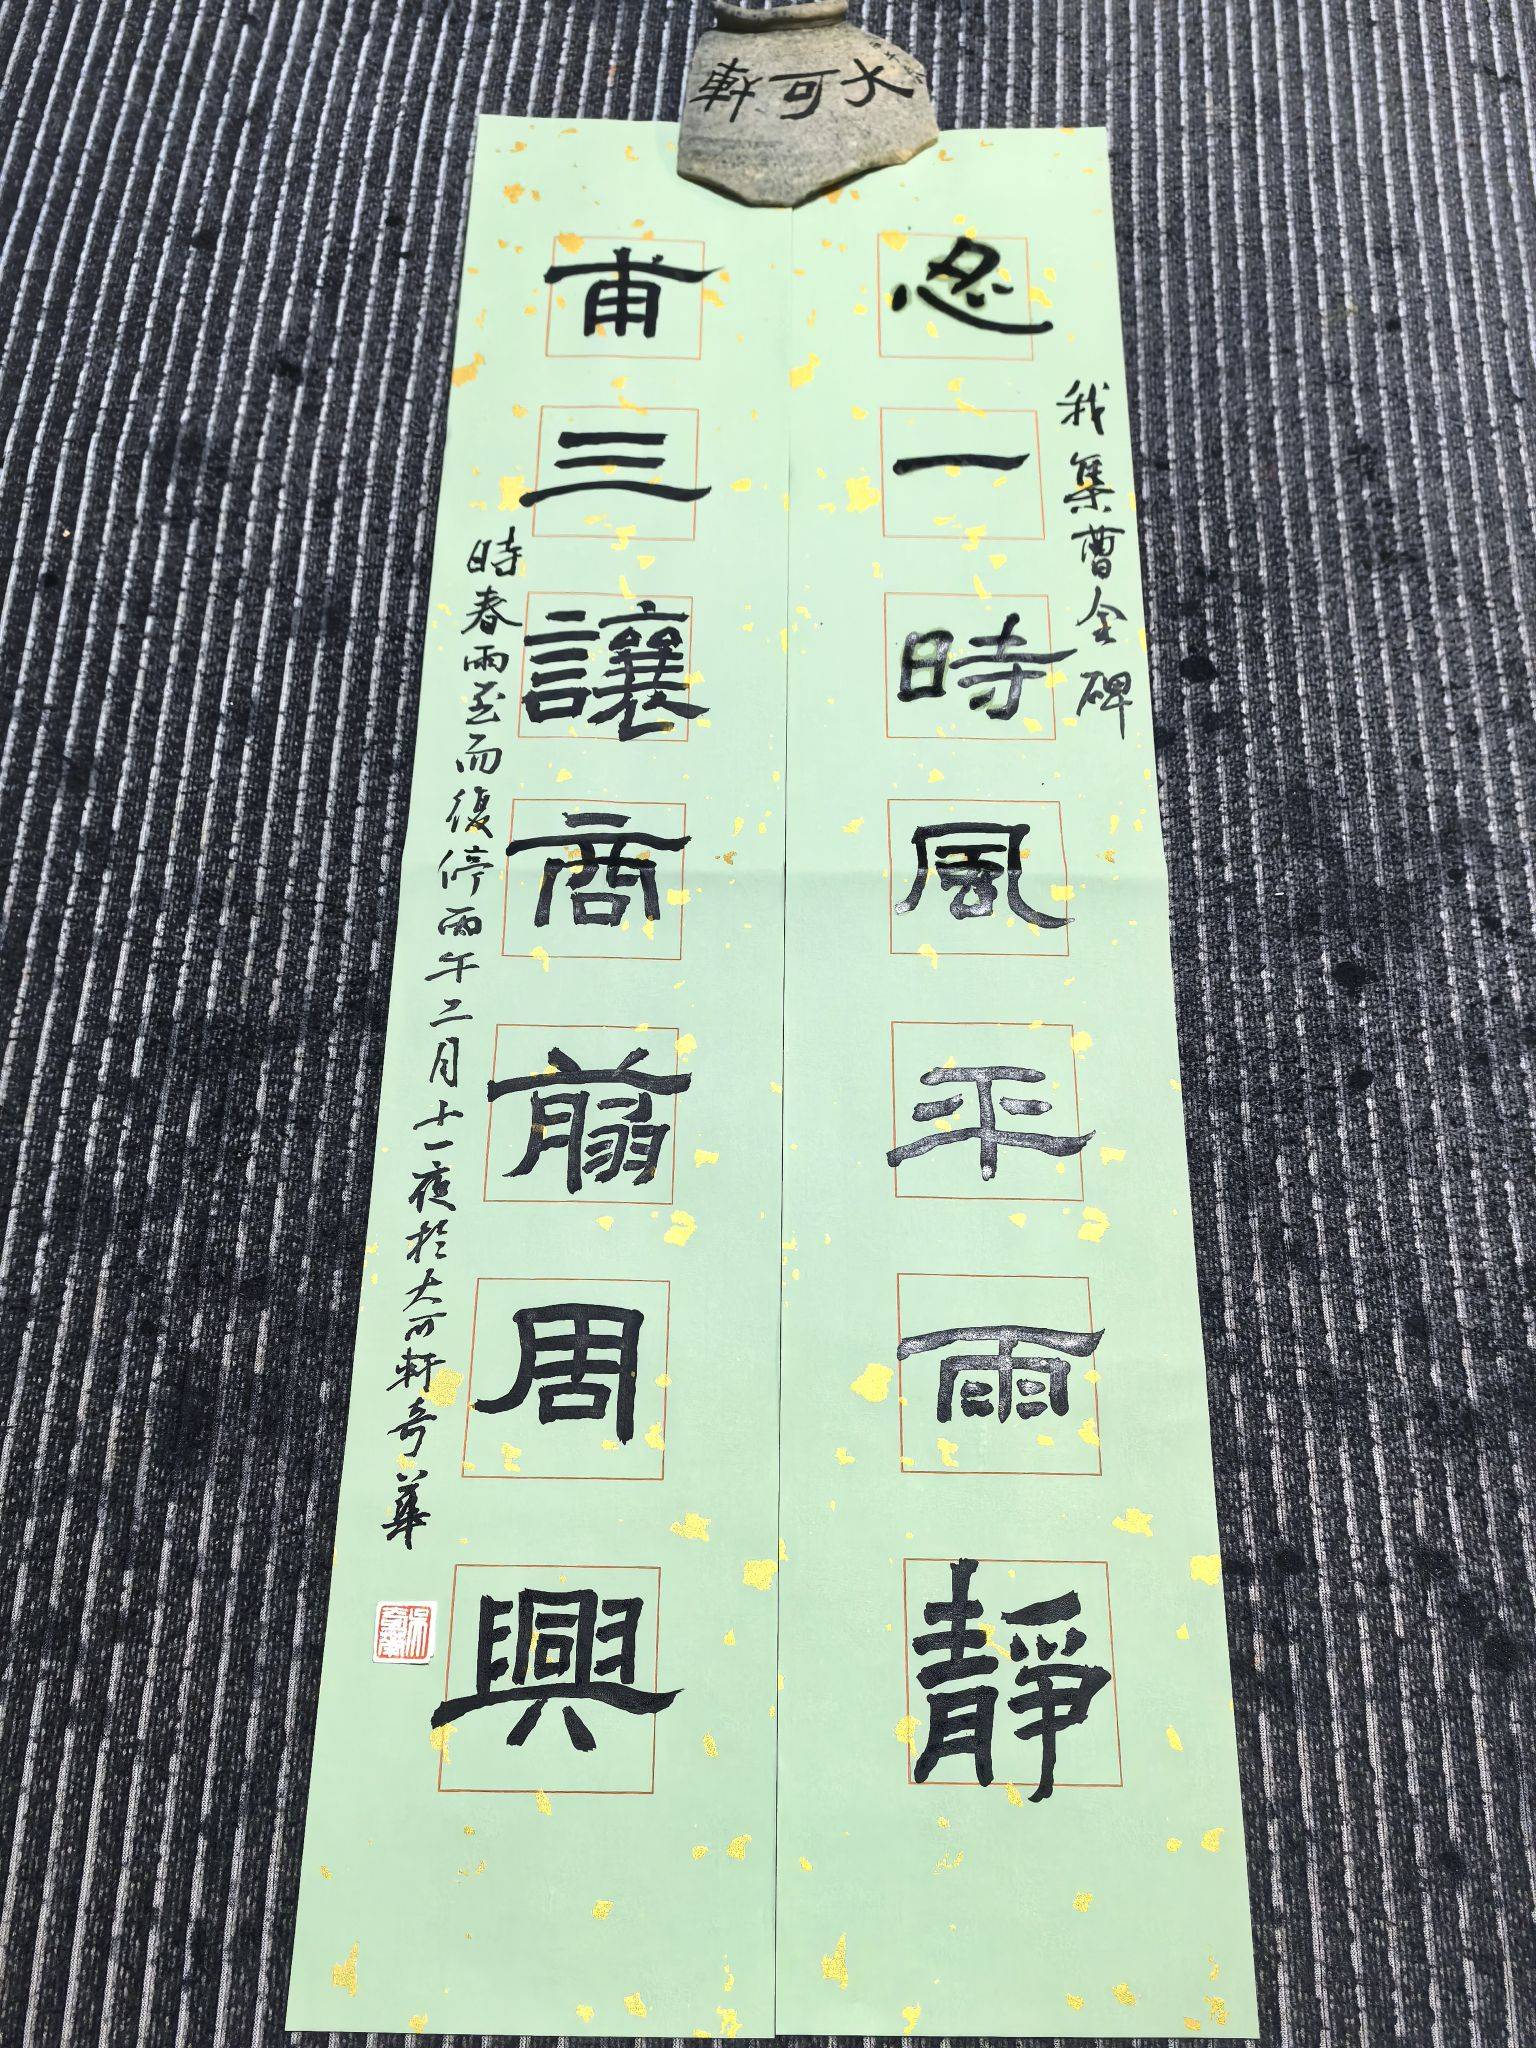 大可軒
我集曹全碑
忍一時風平雨靜
甫三讓商翦周興
時春雨至而復停丙午二月十一夜於大可軒奇華